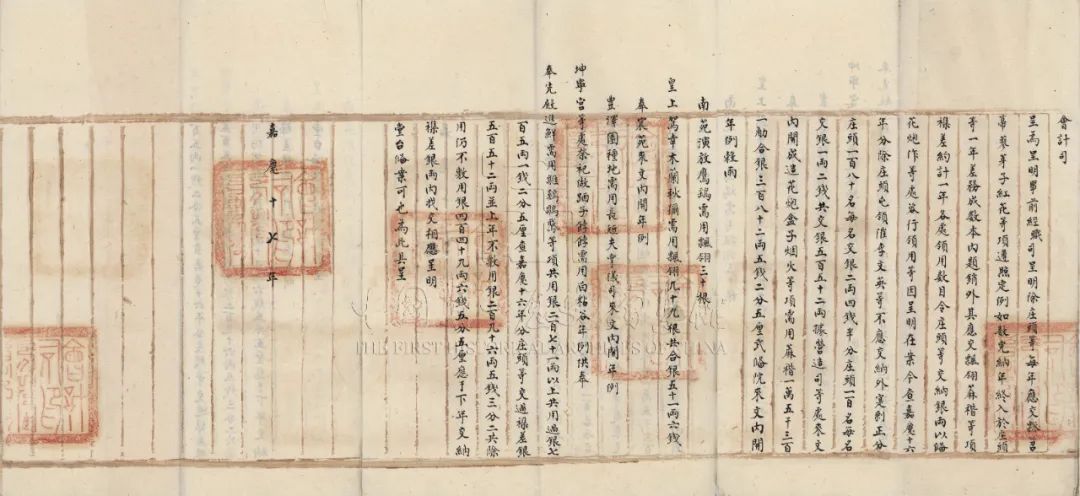 會計司
呈為呈明事前經職司呈明除庄頭等每年應交掀笤
帚蔞芽子紅花等項遵照定例如數完納年終入於庄頭
等一年差務成數本內題銷外其應交瓢翎蔴稭等項
襍差約計一年各處領用數目令庄頭等交納銀兩以備
花炮作等處發行領用等因呈明在案今查嘉慶十六
年分除庄頭屯領催李文英等不應交納外實到正分
庄頭一百八十名每名交銀二兩四錢半分庄頭一百名每名
交銀一兩二錢共交銀五百五十二兩據營造司等處來文
內開成造花炮盒子烟火等項需用蔴稭一萬五千三百
一觔合銀三百八十二兩五錢二分五厘武備院來文內開
年例穀雨
南苑演放鷹鷂需用瓢翎三十根
皇上駕幸木蘭秋獮需用瓢翎九十九根共合銀五十一兩六錢
奉宸苑來文內開年例
豐澤園種地需用長短夫掌儀司來文內開年例
坤寧宮等處祭祀做餑餑需用白粘谷年例供奉
奉先殿進鮮需用雛雞鵝等項共用銀二百七十一兩以上共用過銀七
百五兩一錢二分五厘查嘉慶十六年分庄頭等交過襍差銀
五百五十二兩並上年不敷用銀二百九十六兩五錢三分二共除
用仍不敷用銀四百四十九兩六錢五分五厘應于下年交納
襍差銀兩內找交相應呈明
堂台備案可也為此具呈
嘉慶十七年
THE FIRST HISTORICAL ARCHIVES OF CHINA